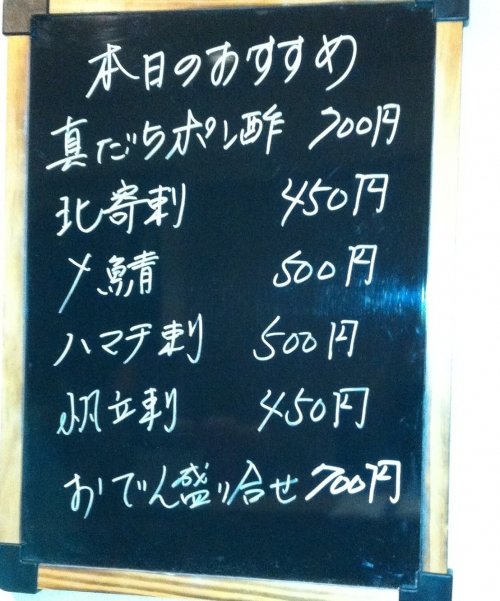 本日のおすすめ
真だちポン酢 700円
北寄刺 450円
〆鯖 500円
ハマチ刺 500円
帆立刺 450円
おでん盛り合せ 700円